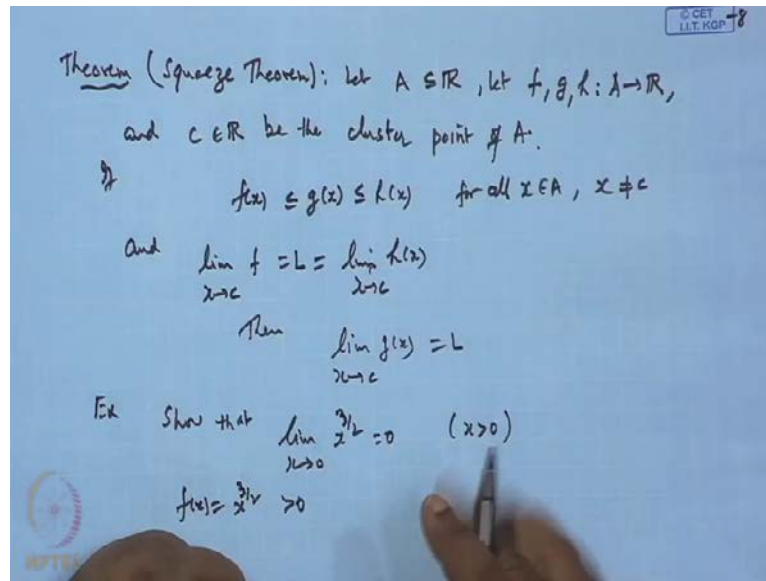 © CET
I.I.T. KGP
-8
Theorem (Squeeze Theorem): Let A ⊆ ℝ, let f, g, h: A→ℝ,
and c ∈ ℝ be the cluster point of A.
If
f(x) ≤ g(x) ≤ h(x) for all x ∈ A, x ≠ c
And lim f = L = lim h(x)
x→c x→c
Then lim g(x) = L
x→c
Ex Show that lim x^{3/2} = 0 (x>0)
x→0
f(x) = x^{3/2} >0
NPTEL